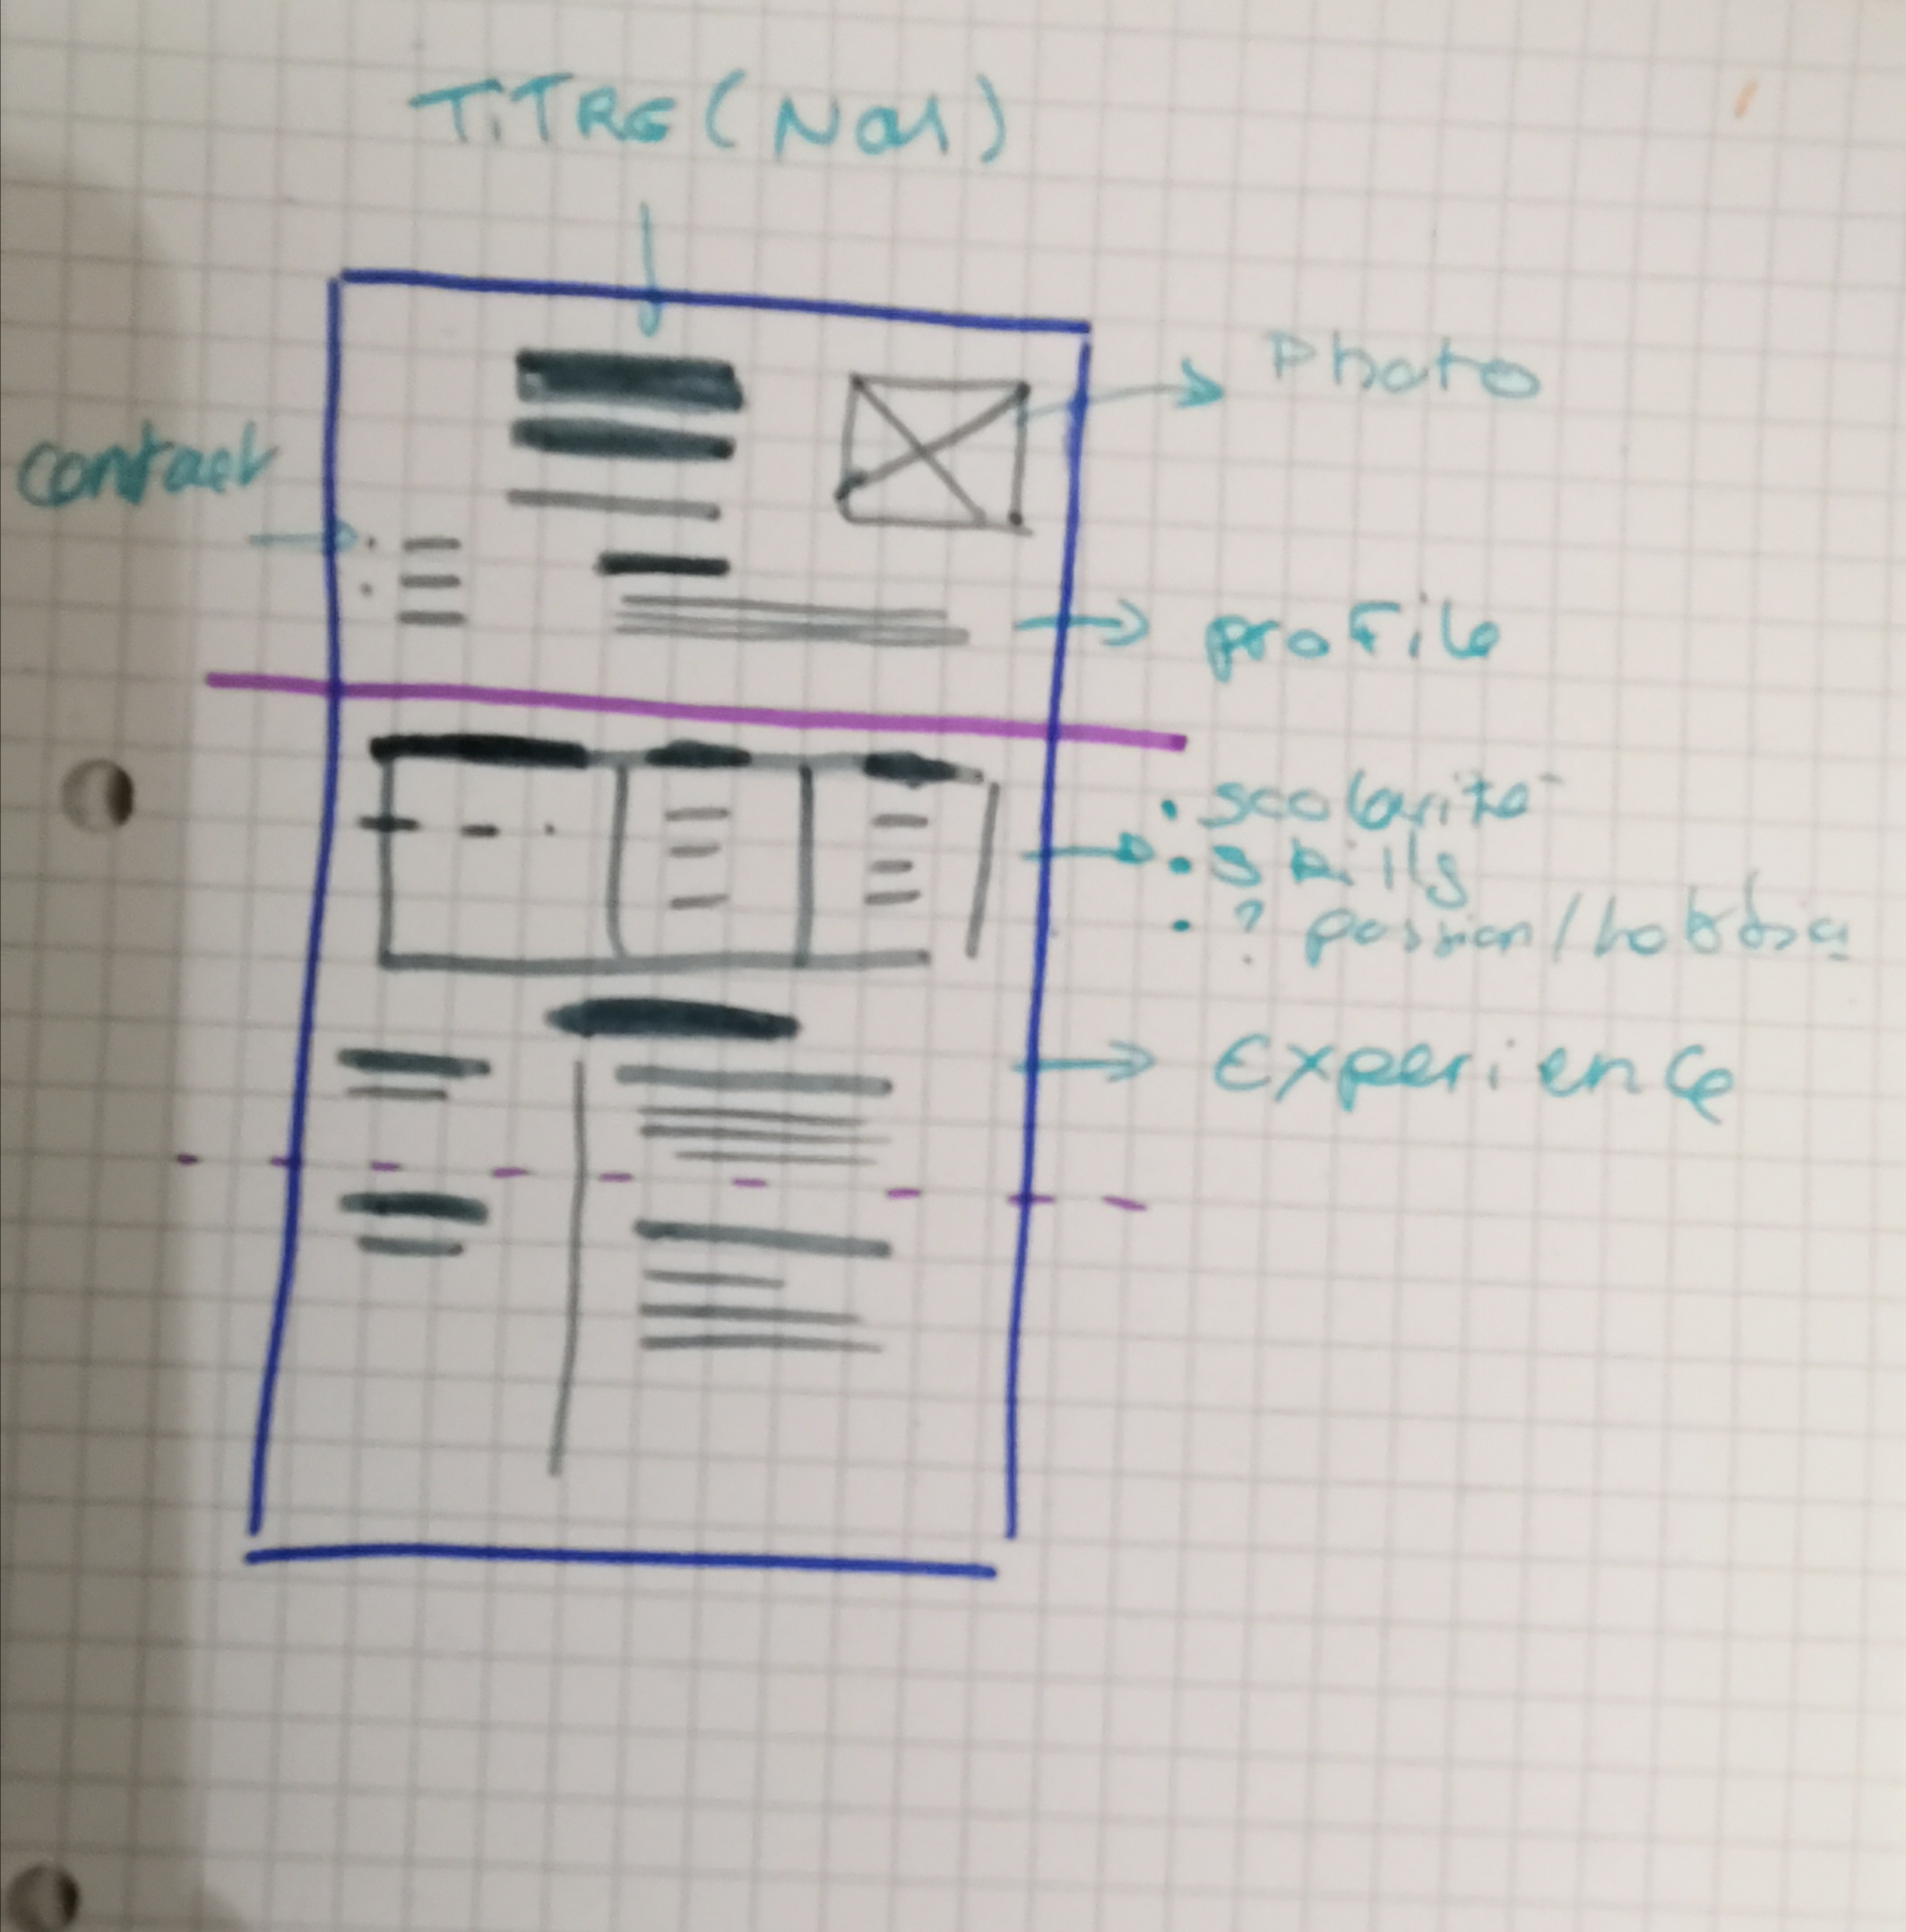 TiTRE (Nom)
Photo
contact
profile
• scolarité
• skills
• ? passion / hobbie
Experience